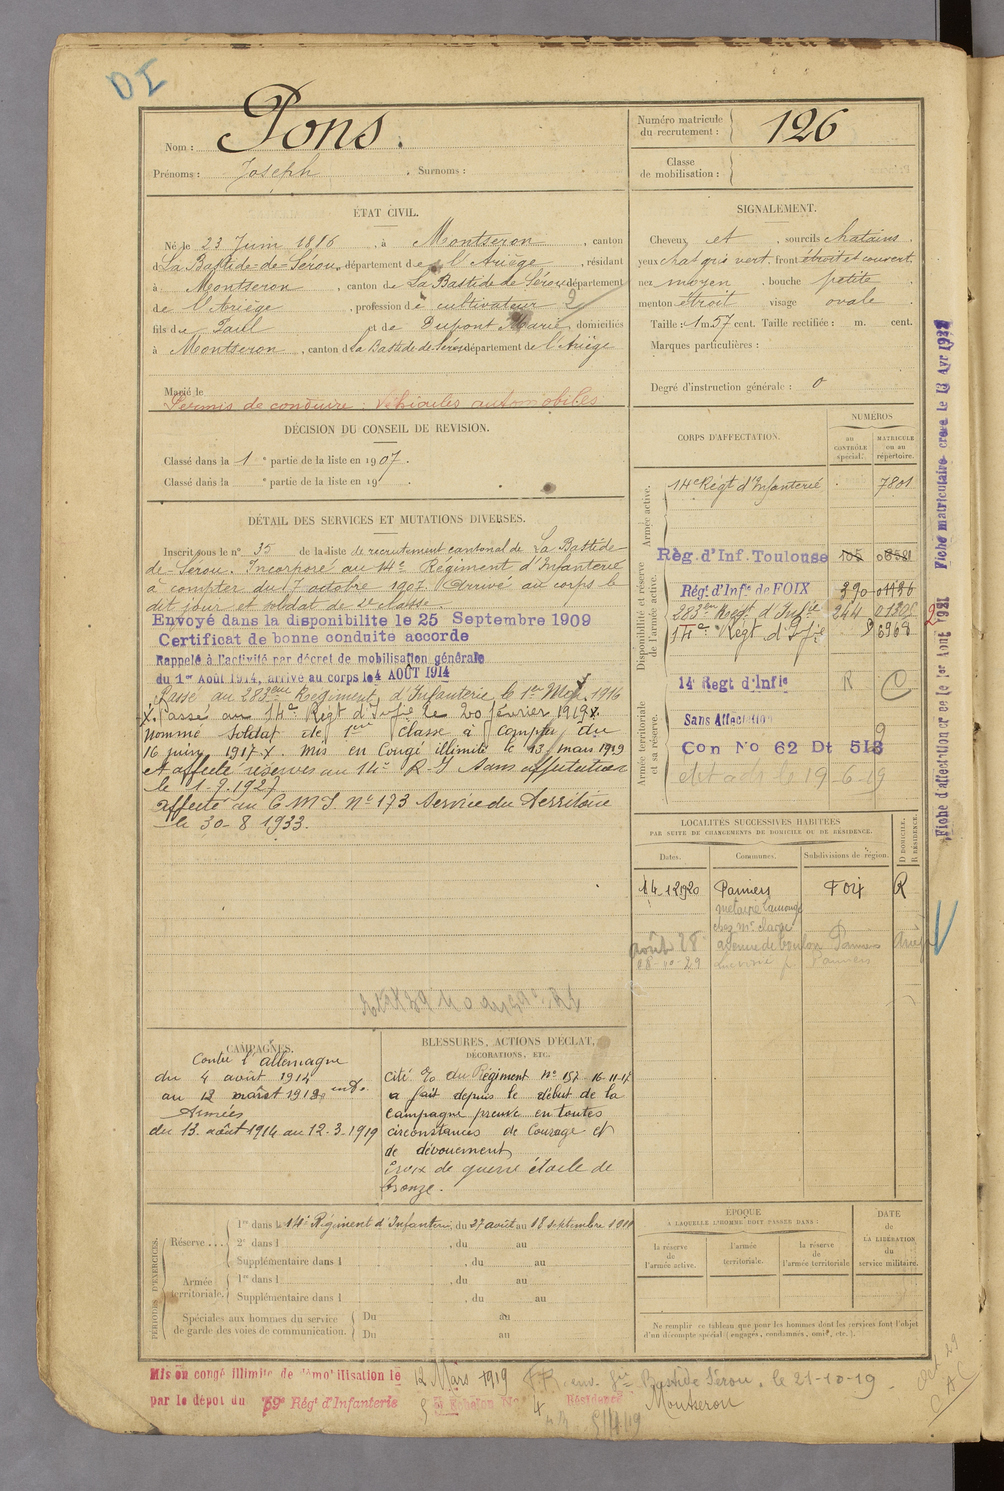 DI
Nom : Pons.
Prénoms : Joseph . Surnoms :
Numéro matricule du recrutement : 126
Classe de mobilisation :
ÉTAT CIVIL.
Né le 23 Juin 1886, à Montseron, canton
d La Bastide-de-Sérou, département de l'Ariège, résidant
à Montseron, canton de La Bastide de Sérou département
de l'Ariège, profession de cultivateur 2
fils de Paul et de Dupont Marie, domiciliés
à Montseron, canton d La Bastide de Sérou département de l'Ariège
Marié le
Permis de conduire : Véhicules automobiles
SIGNALEMENT.
Cheveux et , sourcils chatains .
yeux chat gris vert, front étroit et couvert,
nez moyen , bouche petite
menton étroit visage ovale .
Taille : 1 m 57 cent. Taille rectifiée : m. cent.
Marques particulières :
Degré d'instruction générale : 0
DÉCISION DU CONSEIL DE REVISION.
Classé dans la 1e partie de la liste en 1907.
Classé dans la e partie de la liste en 19
DÉTAIL DES SERVICES ET MUTATIONS DIVERSES.
Inscrit sous le n° 35 de la liste de recrutement cantonal de La Bastide
de Sérou. Incorporé au 14e Régiment d'Infanterie
à compter du 7 octobre 1907. Arrivé au corps le
dit jour et soldat de 2e classe.
Envoyé dans la disponibilite le 25 Septembre 1909
Certificat de bonne conduite accorde
Rappelé à l'activité par décret de mobilisation générale
du 1er Août 1914, arrivé au corps le 4 AOÛT 1914
Passé au 283eme Régiment d'Infanterie le 1er
X. Passé au 14e Régt d'Infie le 20 février 1919 X.
Nommé Soldat de 1ere Classe à compter du
16 juin 1917 X. Mis en Congé illimité le 13 mars 1919
et affecté réserves au 14e R.I Sans affectation
le 1-9.1927
affecté au C M I N° 173 Service du Territoire
le 30-8 1933.
CORPS D'AFFECTATION.
NUMÉROS
au CONTRÔLE spécial.
MATRICULE ou au répertoire.
Armée active.
14e Régt d'Infanterie 7801
Disponibilité et réserve de l'armée active.
Règ. d'Inf. Toulouse 105
Régt. d'Infie de FOIX 390
283eme Régt d'Infie 244
14e Régt d'Infie
Armée territoriale et sa réserve.
14 Regt d'Infie R C
Sans Affectation
Con No 62 Dt 513
le 19-6-19
Fiche d'affectation cr ee le 1er Aout 1931 Fiche matriculaire creee le 13 Avr 1932
LOCALITÉS SUCCESSIVES HABITÉES
PAR SUITE DE CHANGEMENTS DE DOMICILE OU DE RÉSIDENCE.
Dates. Communes. Subdivisions de région. D DOMICILE. R RÉSIDENCE.
14-12 1920 Pamiers Foix R
chez Mr
août 28 avenue de Pamiers Ariège
29 Pamiers
CAMPAGNES.
Contre l'allemagne
du 4 août 1914
au 12 mars 1919
Armées
du 13. août 1914 au 12-3-1919
BLESSURES, ACTIONS D'ÉCLAT,
DÉCORATIONS, ETC.
Cité % du Régiment N° 157. 16-11-17
a fait depuis le début de la
campagne preuve en toutes
circonstances de Courage et
de dévouement
Croix de guerre étoile de
bronze.
PÉRIODES D'EXERCICES.
Réserve ...
1re dans le 14e Régiment d'Infanterie, du 27 août au 18 septembre 1911
2e dans l , du au
Supplémentaire dans l , du au
Armée territoriale.
1re dans l , du au
Supplémentaire dans l , du au
Spéciales aux hommes du service de garde des voies de communication.
Du au
Du au
ÉPOQUE
À LAQUELLE L'HOMME DOIT PASSER DANS :
la réserve de l'armée active.
l'armée territoriale.
la réserve de l'armée territoriale
DATE de LA LIBÉRATION du service militaire.
Ne remplir ce tableau que pour les hommes dont les services font l'objet
d'un décompte spécial (engagés, condamnés, omis, etc.).
Mis en congé illimité de démobilisation le 12 Mars 1919
par le dépôt du 59e Régt d'Infanterie
Echelon No 4 Résidence
Bastide Sérou. le 21-10-19
Montseron